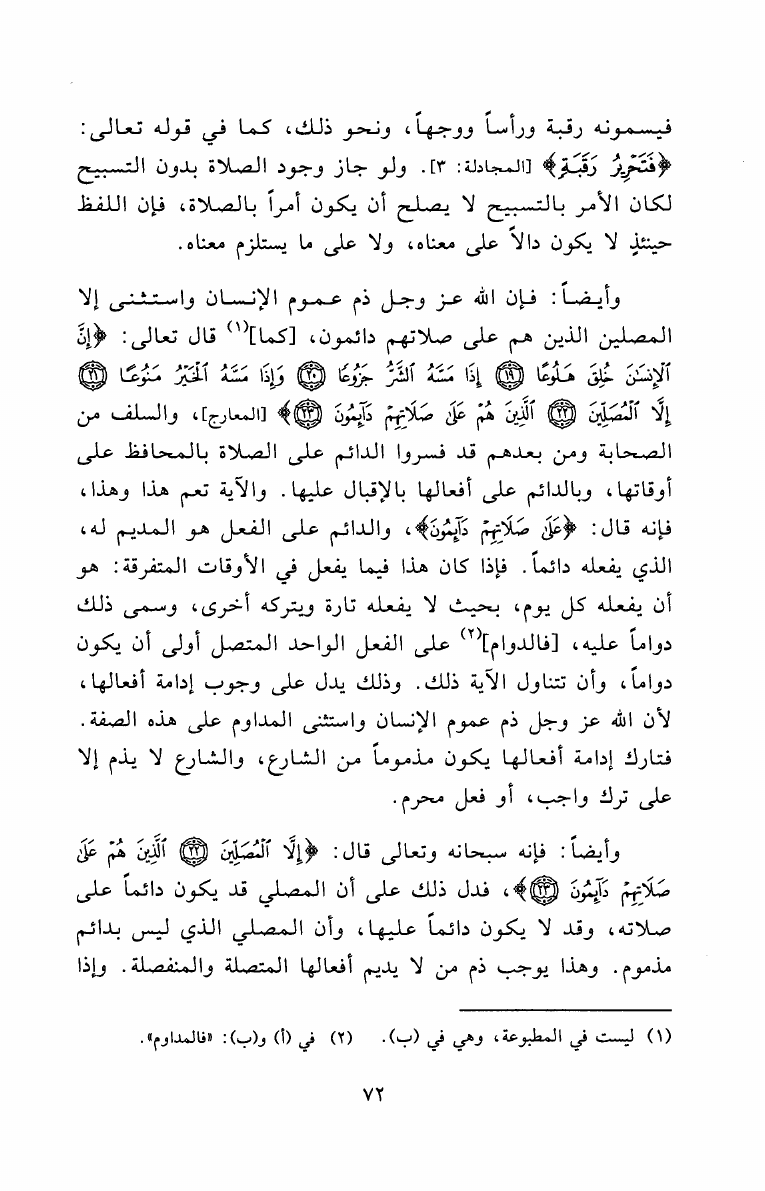 فيسمونه رقبة ورأساً ووجهاً، ونحو ذلك، كما في قوله تعالى:
﴿فَتَحْرِيرُ رَقَبَةٍ﴾ [المجادلة: ٣]. ولو جاز وجود الصلاة بدون التسبيح
لكان الأمر بالتسبيح لا يصلح أن يكون أمراً بالصلاة، فإن اللفظ
حينئذٍ لا يكون دالاً على معناه، ولا على ما يستلزم معناه.
وأيضاً: فإن الله عز وجل ذم عموم الإنسان واستثنى إلا
المصلين الذين هم على صلاتهم دائمون، [كما](١) قال تعالى: ﴿إِنَّ
ٱلْإِنسَٰنَ خُلِقَ هَلُوعًا ۝١٩ إِذَا مَسَّهُ ٱلشَّرُّ جَزُوعًا ۝٢٠ وَإِذَا مَسَّهُ ٱلْخَيْرُ مَنُوعًا ۝٢١
إِلَّا ٱلْمُصَلِّينَ ۝٢٢ ٱلَّذِينَ هُمْ عَلَىٰ صَلَاتِهِمْ دَآئِمُونَ ۝٢٣﴾ [المعارج]، والسلف من
الصحابة ومن بعدهم قد فسروا الدائم على الصلاة بالمحافظ على
أوقاتها، وبالدائم على أفعالها بالإقبال عليها. والآية تعم هذا وهذا،
فإنه قال: ﴿عَلَىٰ صَلَاتِهِمْ دَآئِمُونَ﴾، والدائم على الفعل هو المديم له،
الذي يفعله دائماً. فإذا كان هذا فيما يفعل في الأوقات المتفرقة: هو
أن يفعله كل يوم، بحيث لا يفعله تارة ويتركه أخرى، وسمى ذلك
دواماً عليه، [فالدوام](٢) على الفعل الواحد المتصل أولى أن يكون
دواماً، وأن تتناول الآية ذلك. وذلك يدل على وجوب إدامة أفعالها،
لأن الله عز وجل ذم عموم الإنسان واستثنى المداوم على هذه الصفة.
فتارك إدامة أفعالها يكون مذموماً من الشارع، والشارع لا يذم إلا
على ترك واجب، أو فعل محرم.
وأيضاً: فإنه سبحانه وتعالى قال: ﴿إِلَّا ٱلْمُصَلِّينَ ۝٢٢ ٱلَّذِينَ هُمْ عَلَىٰ
صَلَاتِهِمْ دَآئِمُونَ ۝٢٣﴾، فدل ذلك على أن المصلي قد يكون دائماً على
صلاته، وقد لا يكون دائماً عليها، وأن المصلي الذي ليس بدائم
مذموم. وهذا يوجب ذم من لا يديم أفعالها المتصلة والمنفصلة. وإذا
(١) ليست في المطبوعة، وهي في (ب). (٢) في (أ) و(ب): «فالمداوم».
٧٢